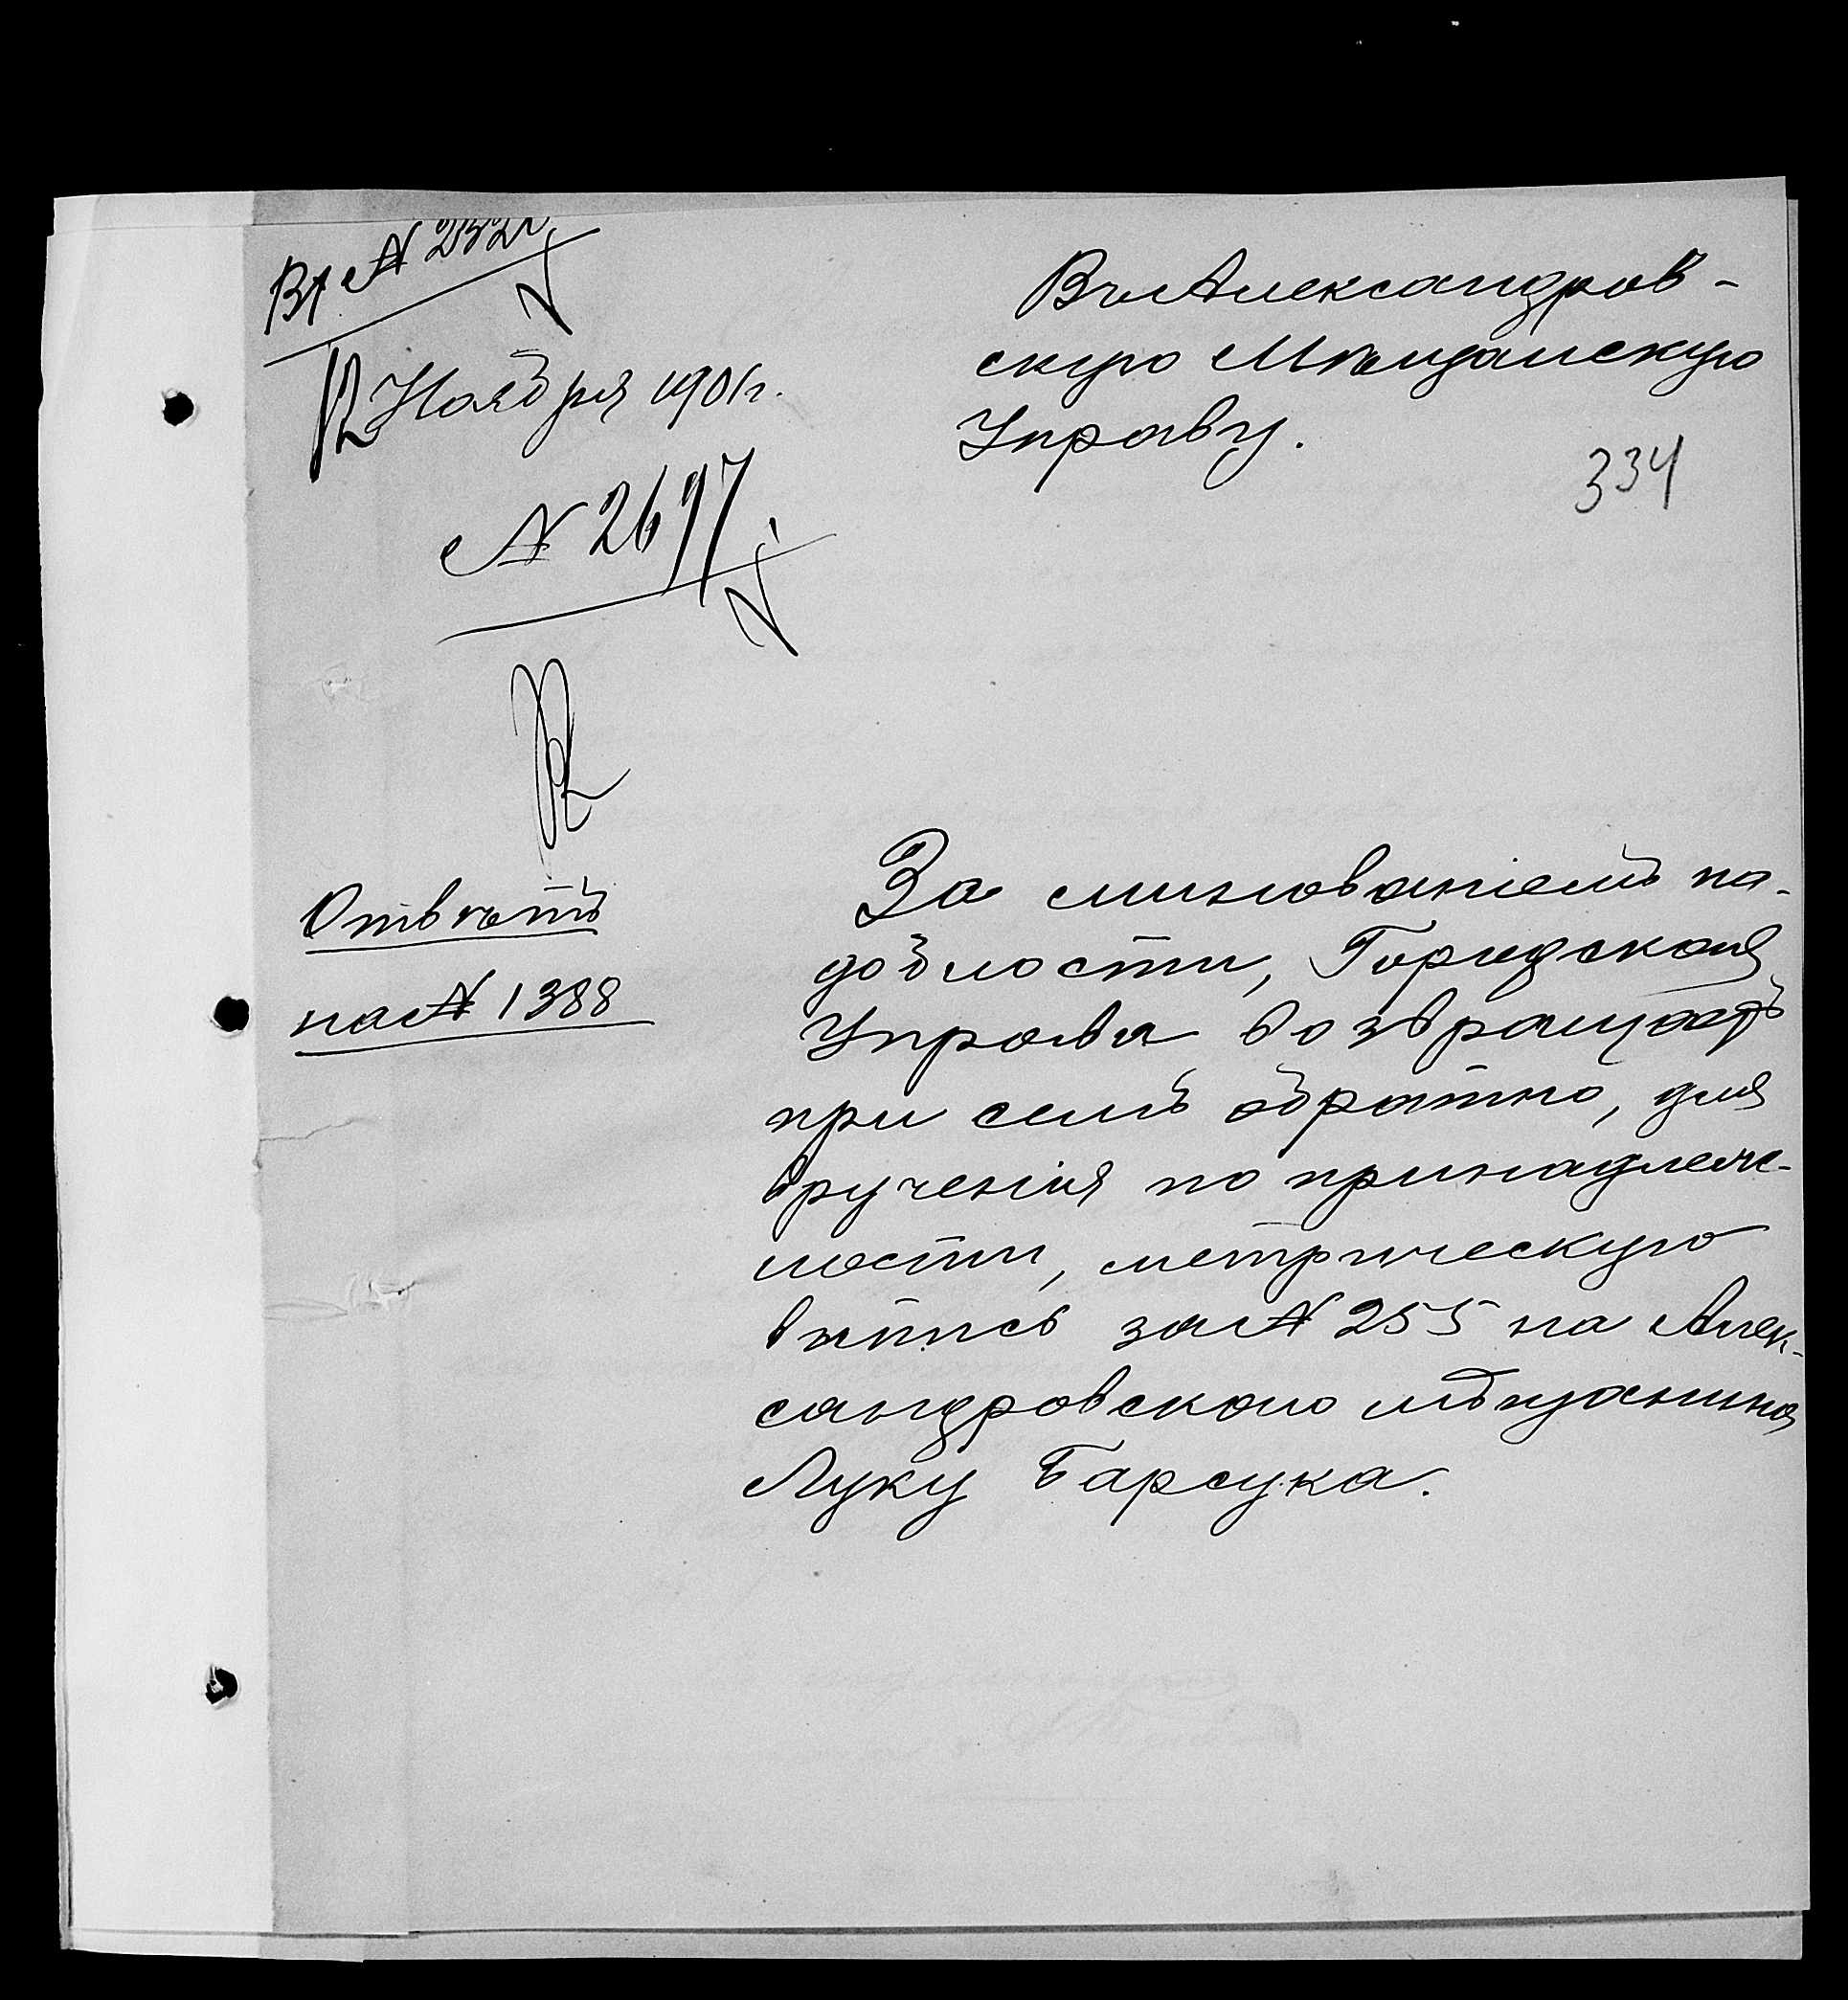 Вх №
12 Ноября 1901 г.
№ 2697
Въ Александров-
скую Мѣщанскую
Управу.
334
Отвѣтъ
на № 1388
За минованіемъ на-
добности, Городская
Управа возвращаетъ
при семъ обратно, для
врученія по принадлеж-
ности, метрическую
выпись за № 255 на Алек-
сандровскаго мѣщанина
Луку Барсука.